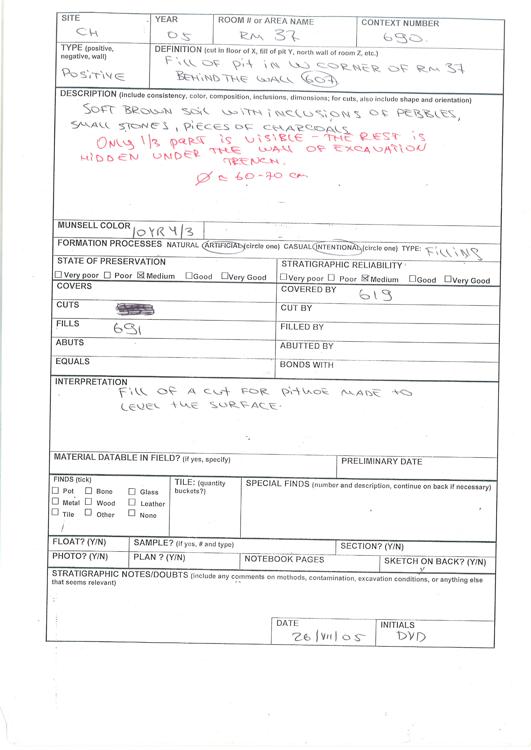 SITE YEAR ROOM # or AREA NAME CONTEXT NUMBER
CH 05 RM 37 690
TYPE (positive, negative, wall)
POSITIVE
DEFINITION (cut in floor of X, fill of pit Y, north wall of room Z, etc.)
FILL OF PIT IN W CORNER OF RM 37
BEHIND THE WALL 607
DESCRIPTION (include consistency, color, composition, inclusions, dimensions; for cuts, also shape and orientation)
SOFT BROWN SOIL WITH INCLUSIONS OF PEBBLES,
SMALL STONES, PIECES OF CHARCOALS
ONLY 1/3 PART IS VISIBLE - THE REST IS
HIDDEN UNDER THE WALL OF EXCAVATION
TRENCH.
Ø c 60-70 cm
MUNSELL COLOR 10YR 4/3
FORMATION PROCESSES NATURAL ARTIFICIAL (circle one) CASUAL INTENTIONAL (circle one) TYPE: FILLING
STATE OF PRESERVATION STRATIGRAPHIC RELIABILITY
☐ Very poor ☐ Poor ☒ Medium ☐ Good ☐ Very Good ☐ Very poor ☐ Poor ☒ Medium ☐ Good ☐ Very Good
COVERS COVERED BY 619
CUTS CUT BY
FILLS 691 FILLED BY
ABUTS ABUTTED BY
EQUALS BONDS WITH
INTERPRETATION
FILL OF A CUT FOR PITHOE MADE TO
LEVEL THE SURFACE.
MATERIAL DATABLE IN FIELD? (if yes, specify) PRELIMINARY DATE
FINDS (tick) TILE: (quantity buckets?) SPECIAL FINDS (number and description, continue on back if necessary)
☐ Pot ☐ Bone ☐ Glass
☐ Metal ☐ Wood ☐ Leather
☐ Tile ☐ Other ☐ None
FLOAT? (Y/N) SAMPLE? (if yes, # and type) SECTION? (Y/N)
PHOTO? (Y/N) PLAN ? (Y/N) NOTEBOOK PAGES SKETCH ON BACK? (Y/N)
STRATIGRAPHIC NOTES/DOUBTS (include any comments on methods, contamination, excavation conditions, or anything else
that seems relevant)
DATE INITIALS
26/VII/05 DVD